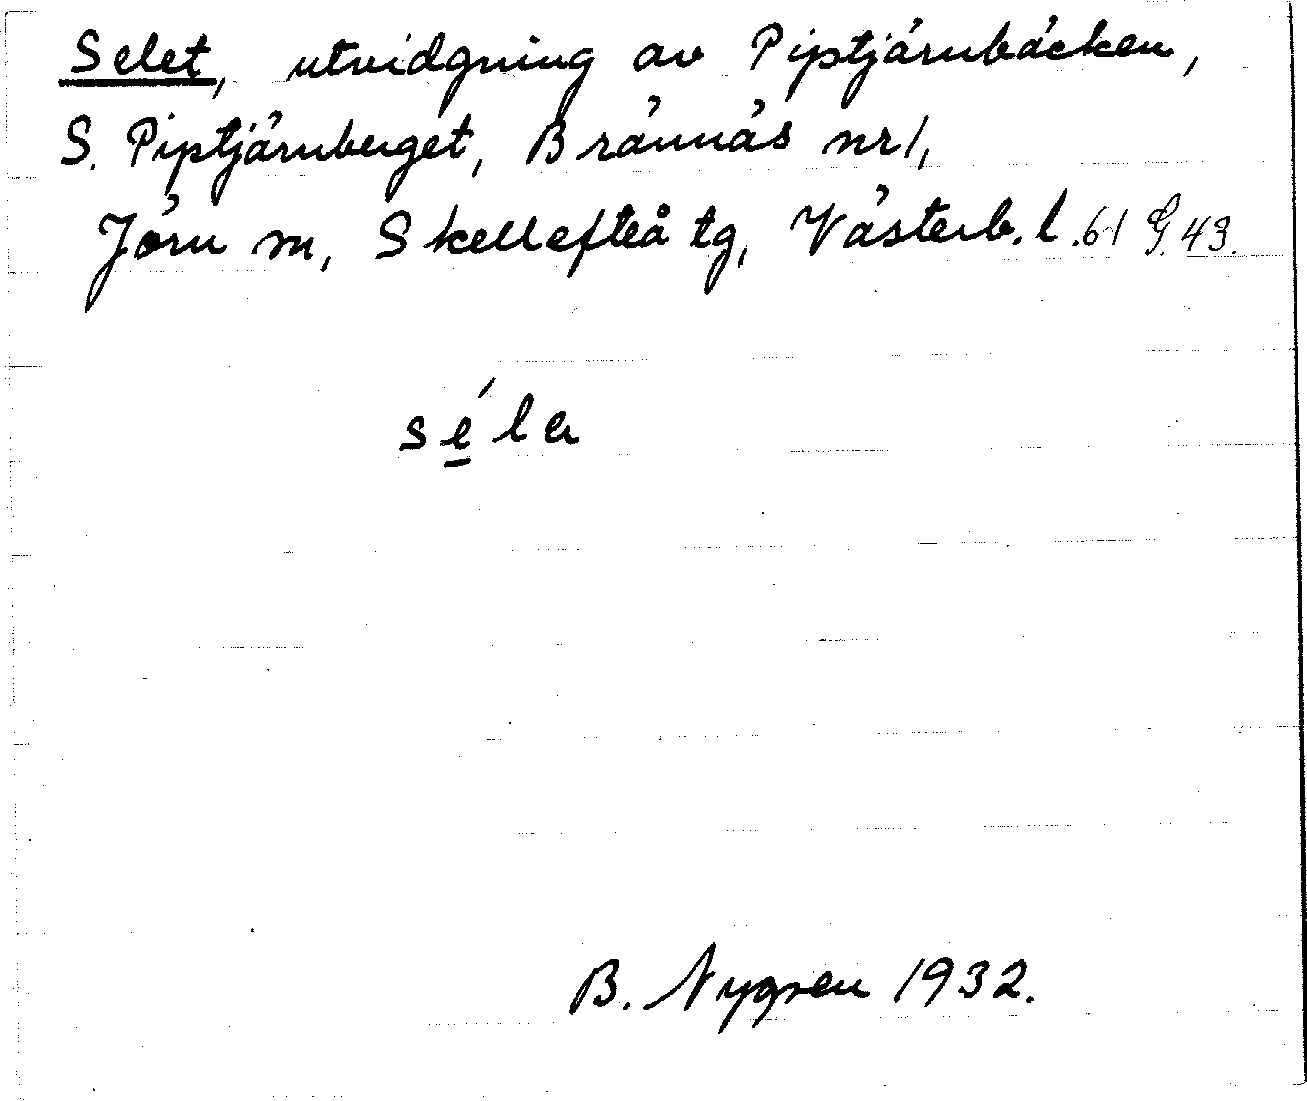 Selet, utvidgning av Piptjärnbäcken,
S. Piptjärnberget, Brännäs nr 1,
Jörn sn, Skellefteå tg, Västerb. l. 61 G. 43.
séla
B. Nygren 1932.